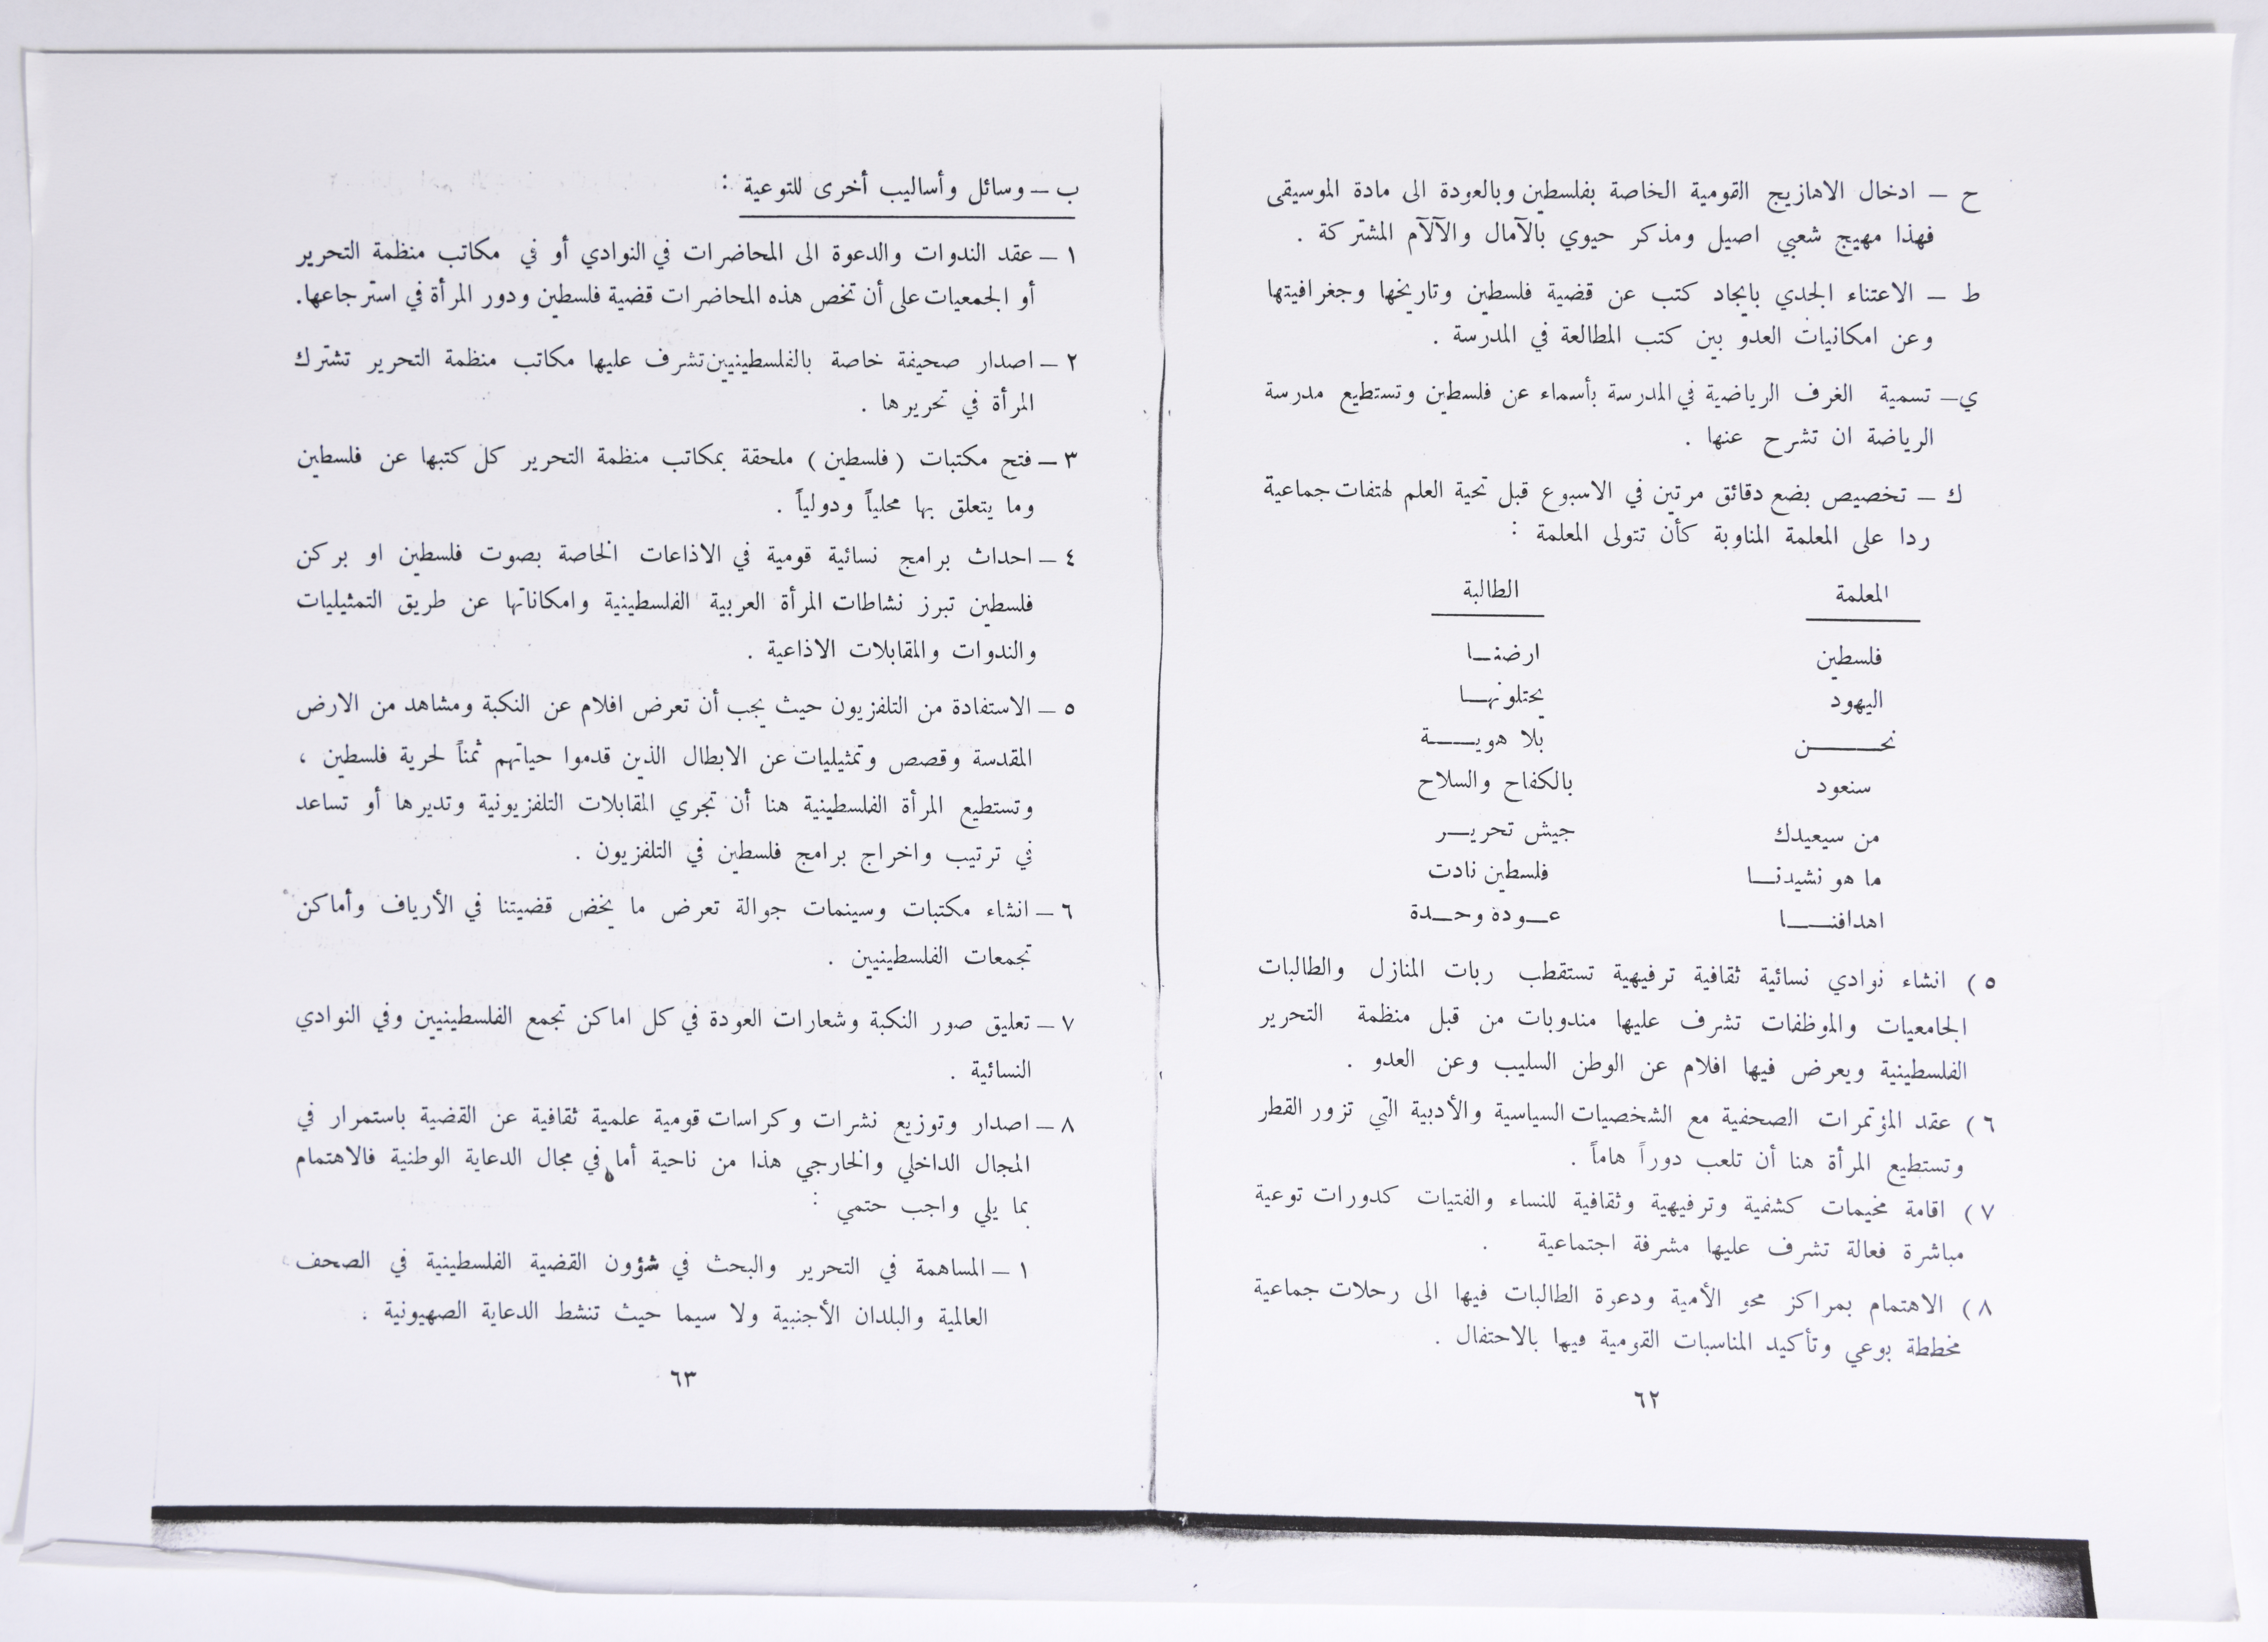 ح ــ ادخال الاهازيج القومية الخاصة بفلسطين وبالعودة الى مادة الموسيقى
فهذا مهيج شعبي اصيل ومذكر حيوي بالآمال والآلآم المشتركة .
ط ــ الاعتناء الجدي بايجاد كتب عن قضية فلسطين وتاريخها وجغرافيتها
وعن امكانيات العدو بين كتب المطالعة في المدرسة .
ي ــ تسمية الغرف الرياضية في المدرسة بأسماء عن فلسطين وتستطيع مدرسة
الرياضة ان تشرح عنها .
ك ــ تخصيص بضع دقائق مرتين في الاسبوع قبل تحية العلم لهتفات جماعية
ردا على المعلمة المناوبة كأن تتولى المعلمة :
المعلمة الطالبة
فلسطين ارضنـــا
اليهود يحتلونهـــا
نحـــــــن بلا هويـــــة
سنعود بالكفاح والسلاح
من سيعيدك جيش تحريـــر
ما هو نشيدنـــا فلسطين نادت
اهدافنـــــا عـــودة وحـــدة
٥ ) انشاء نوادي نسائية ثقافية ترفيهية تستقطب ربات المنازل والطالبات
الجامعيات والموظفات تشرف عليها مندوبات من قبل منظمة التحرير
الفلسطينية ويعرض فيها افلام عن الوطن السليب وعن العدو .
٦ ) عقد المؤتمرات الصحفية مع الشخصيات السياسية والأدبية التي تزور القطر
وتستطيع المرأة هنا أن تلعب دوراً هاماً .
٧ ) اقامة مخيمات كشفية وترفيهية وثقافية للنساء والفتيات كدورات توعية
مباشرة فعالة تشرف عليها مشرفة اجتماعية .
٨ ) الاهتمام بمراكز محو الأمية ودعوة الطالبات فيها الى رحلات جماعية
مخططة بوعي وتأكيد المناسبات القومية فيها بالاحتفال .
٦٢
ب ــ وسائل وأساليب أخرى للتوعية :
١ ــ عقد الندوات والدعوة الى المحاضرات في النوادي أو في مكاتب منظمة التحرير
أو الجمعيات على أن تخص هذه المحاضرات قضية فلسطين ودور المرأة في استرجاعها.
٢ ــ اصدار صحيفة خاصة بالفلسطينيين تشرف عليها مكاتب منظمة التحرير تشترك
المرأة في تحريرها .
٣ ــ فتح مكتبات ( فلسطين ) ملحقة بمكاتب منظمة التحرير كل كتبها عن فلسطين
وما يتعلق بها محلياً ودولياً .
٤ ــ احداث برامج نسائية قومية في الاذاعات الخاصة بصوت فلسطين او بركن
فلسطين تبرز نشاطات المرأة العربية الفلسطينية وامكاناتها عن طريق التمثيليات
والندوات والمقابلات الاذاعية .
٥ ــ الاستفادة من التلفزيون حيث يجب أن تعرض افلام عن النكبة ومشاهد من الارض
المقدسة وقصص وتمثيليات عن الابطال الذين قدموا حياتهم ثمناً لحرية فلسطين ،
وتستطيع المرأة الفلسطينية هنا أن تجري المقابلات التلفزيونية وتديرها أو تساعد
في ترتيب واخراج برامج فلسطين في التلفزيون .
٦ ــ انشاء مكتبات وسينمات جوالة تعرض ما يخض قضيتنا في الأرياف وأماكن
تجمعات الفلسطينيين .
٧ ــ تعليق صور النكبة وشعارات العودة في كل اماكن تجمع الفلسطينيين وفي النوادي
النسائية .
٨ ــ اصدار وتوزيع نشرات وكراسات قومية علمية ثقافية عن القضية باستمرار في
المجال الداخلي والخارجي هذا من ناحية أما في مجال الدعاية الوطنية فالاهتمام
بما يلي واجب حتمي :
١ ــ المساهمة في التحرير والبحث في شؤون القضية الفلسطينية في الصحف
العالمية والبلدان الأجنبية ولا سيما حيث تنشط الدعاية الصهيونية .
٦٣